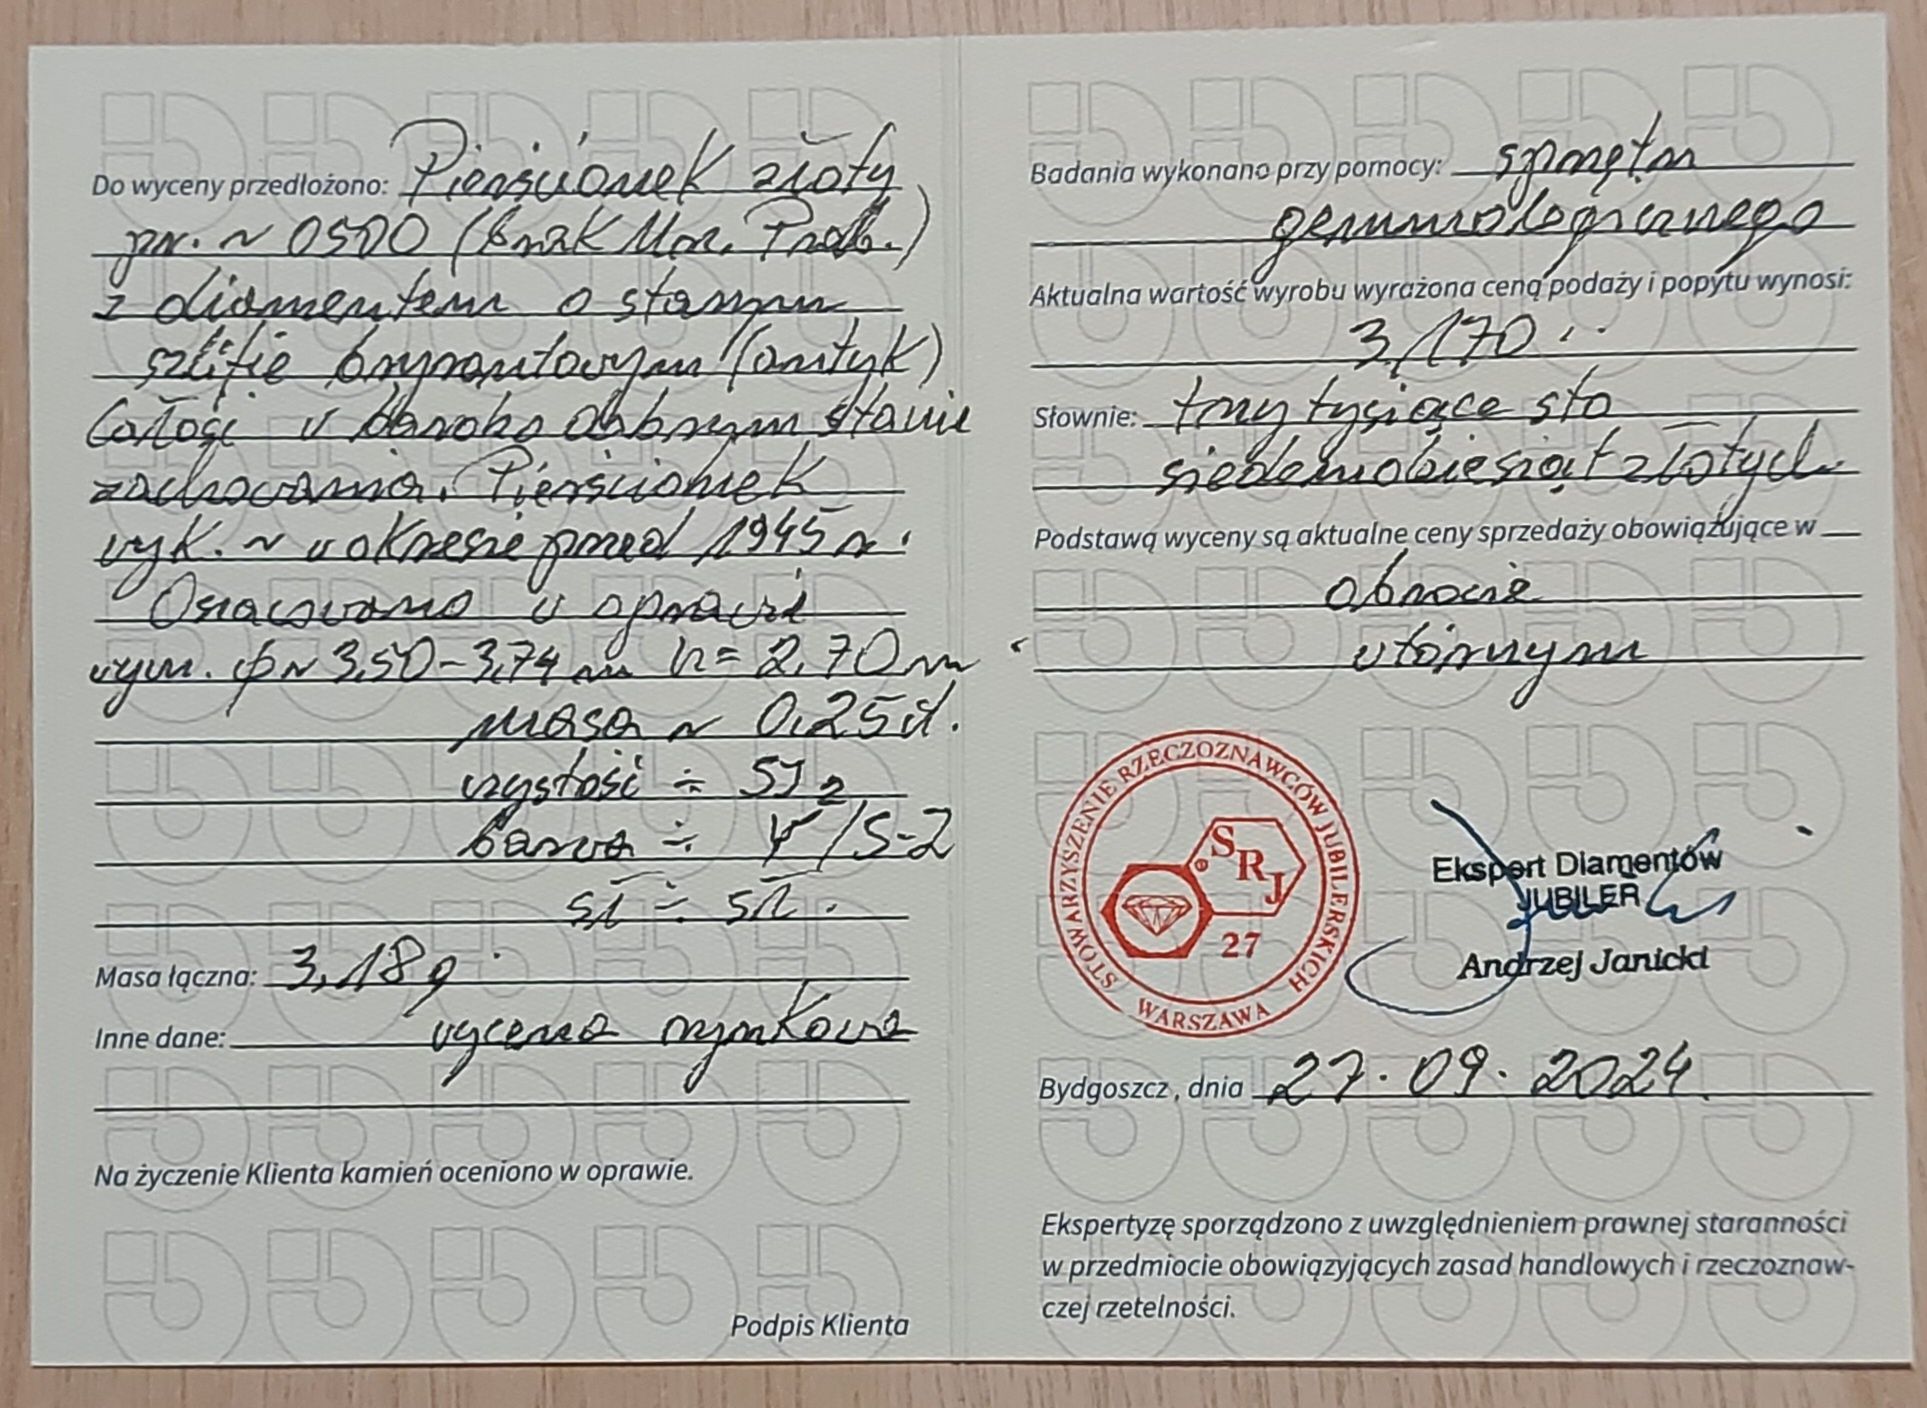 Do wyceny przedłożono: Pierścionek złoty
pr. ~ 0500 (brak Mon. Prob.)
z diamentem o starym
szlifie brylantowym (antyk)
Całość w bardzo dobrym stanie
zachowania. Pierścionek
wyk. ~ w okresie przed 1945 r.
Oszacowano w oprawie
wym. ϕ ~ 3,50-3,74 mm h = 2,70 mm
masa ~ 0,25 ct.
czystość ÷ SJ2
barwa ÷ /S-2
sł ÷ sł.
Masa łączna: 3,18 g
Inne dane: wycena rynkowa
Na życzenie Klienta kamień oceniono w oprawie.
Podpis Klienta
Badania wykonano przy pomocy: sprzętu
gemmologicznego
Aktualna wartość wyrobu wyrażona ceną podaży i popytu wynosi:
3,170
Słownie: trzy tysiące sto
siedemdziesiąt złotych
Podstawą wyceny są aktualne ceny sprzedaży obowiązujące w
obrocie
wtórnym
STOWARZYSZENIE RZECZOZNAWCÓW JUBILERSKICH
WARSZAWA
SRJ
27
Ekspert Diamentów
JUBILER
Andrzej Janicki
Bydgoszcz, dnia 27.09.2024
Ekspertyzę sporządzono z uwzględnieniem prawnej staranności
w przedmiocie obowiązyjących zasad handlowych i rzeczoznaw-
czej rzetelności.